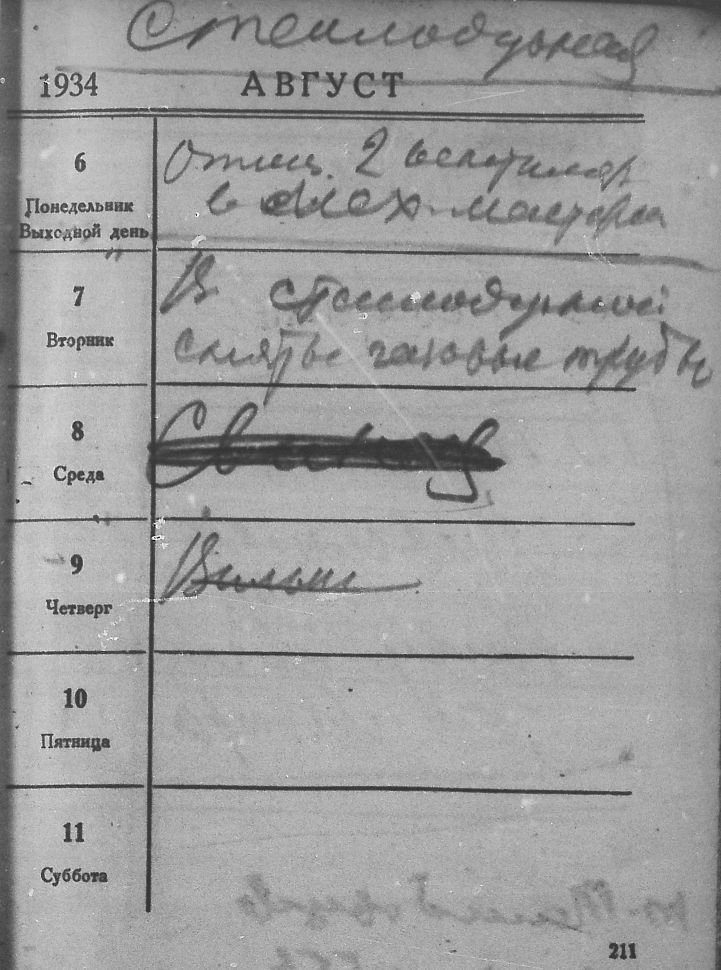 Стеклодувная
1934 АВГУСТ
6
Понедельник
Выходной день
2
в мех. мастерск
7
Вторник
В стеклодувной
сняты газовые трубы
8
Среда
9
Четверг
10
Пятница
11
Суббота
211